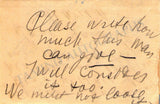 Please write how
much this man
can give —
I will Consider
it too.
We must not loose